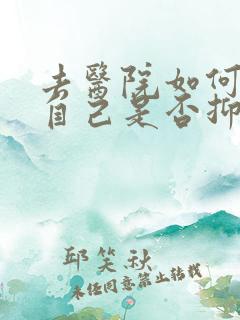 去醫院如何
自己是否抑
邱笑秋
未经同意禁止转载